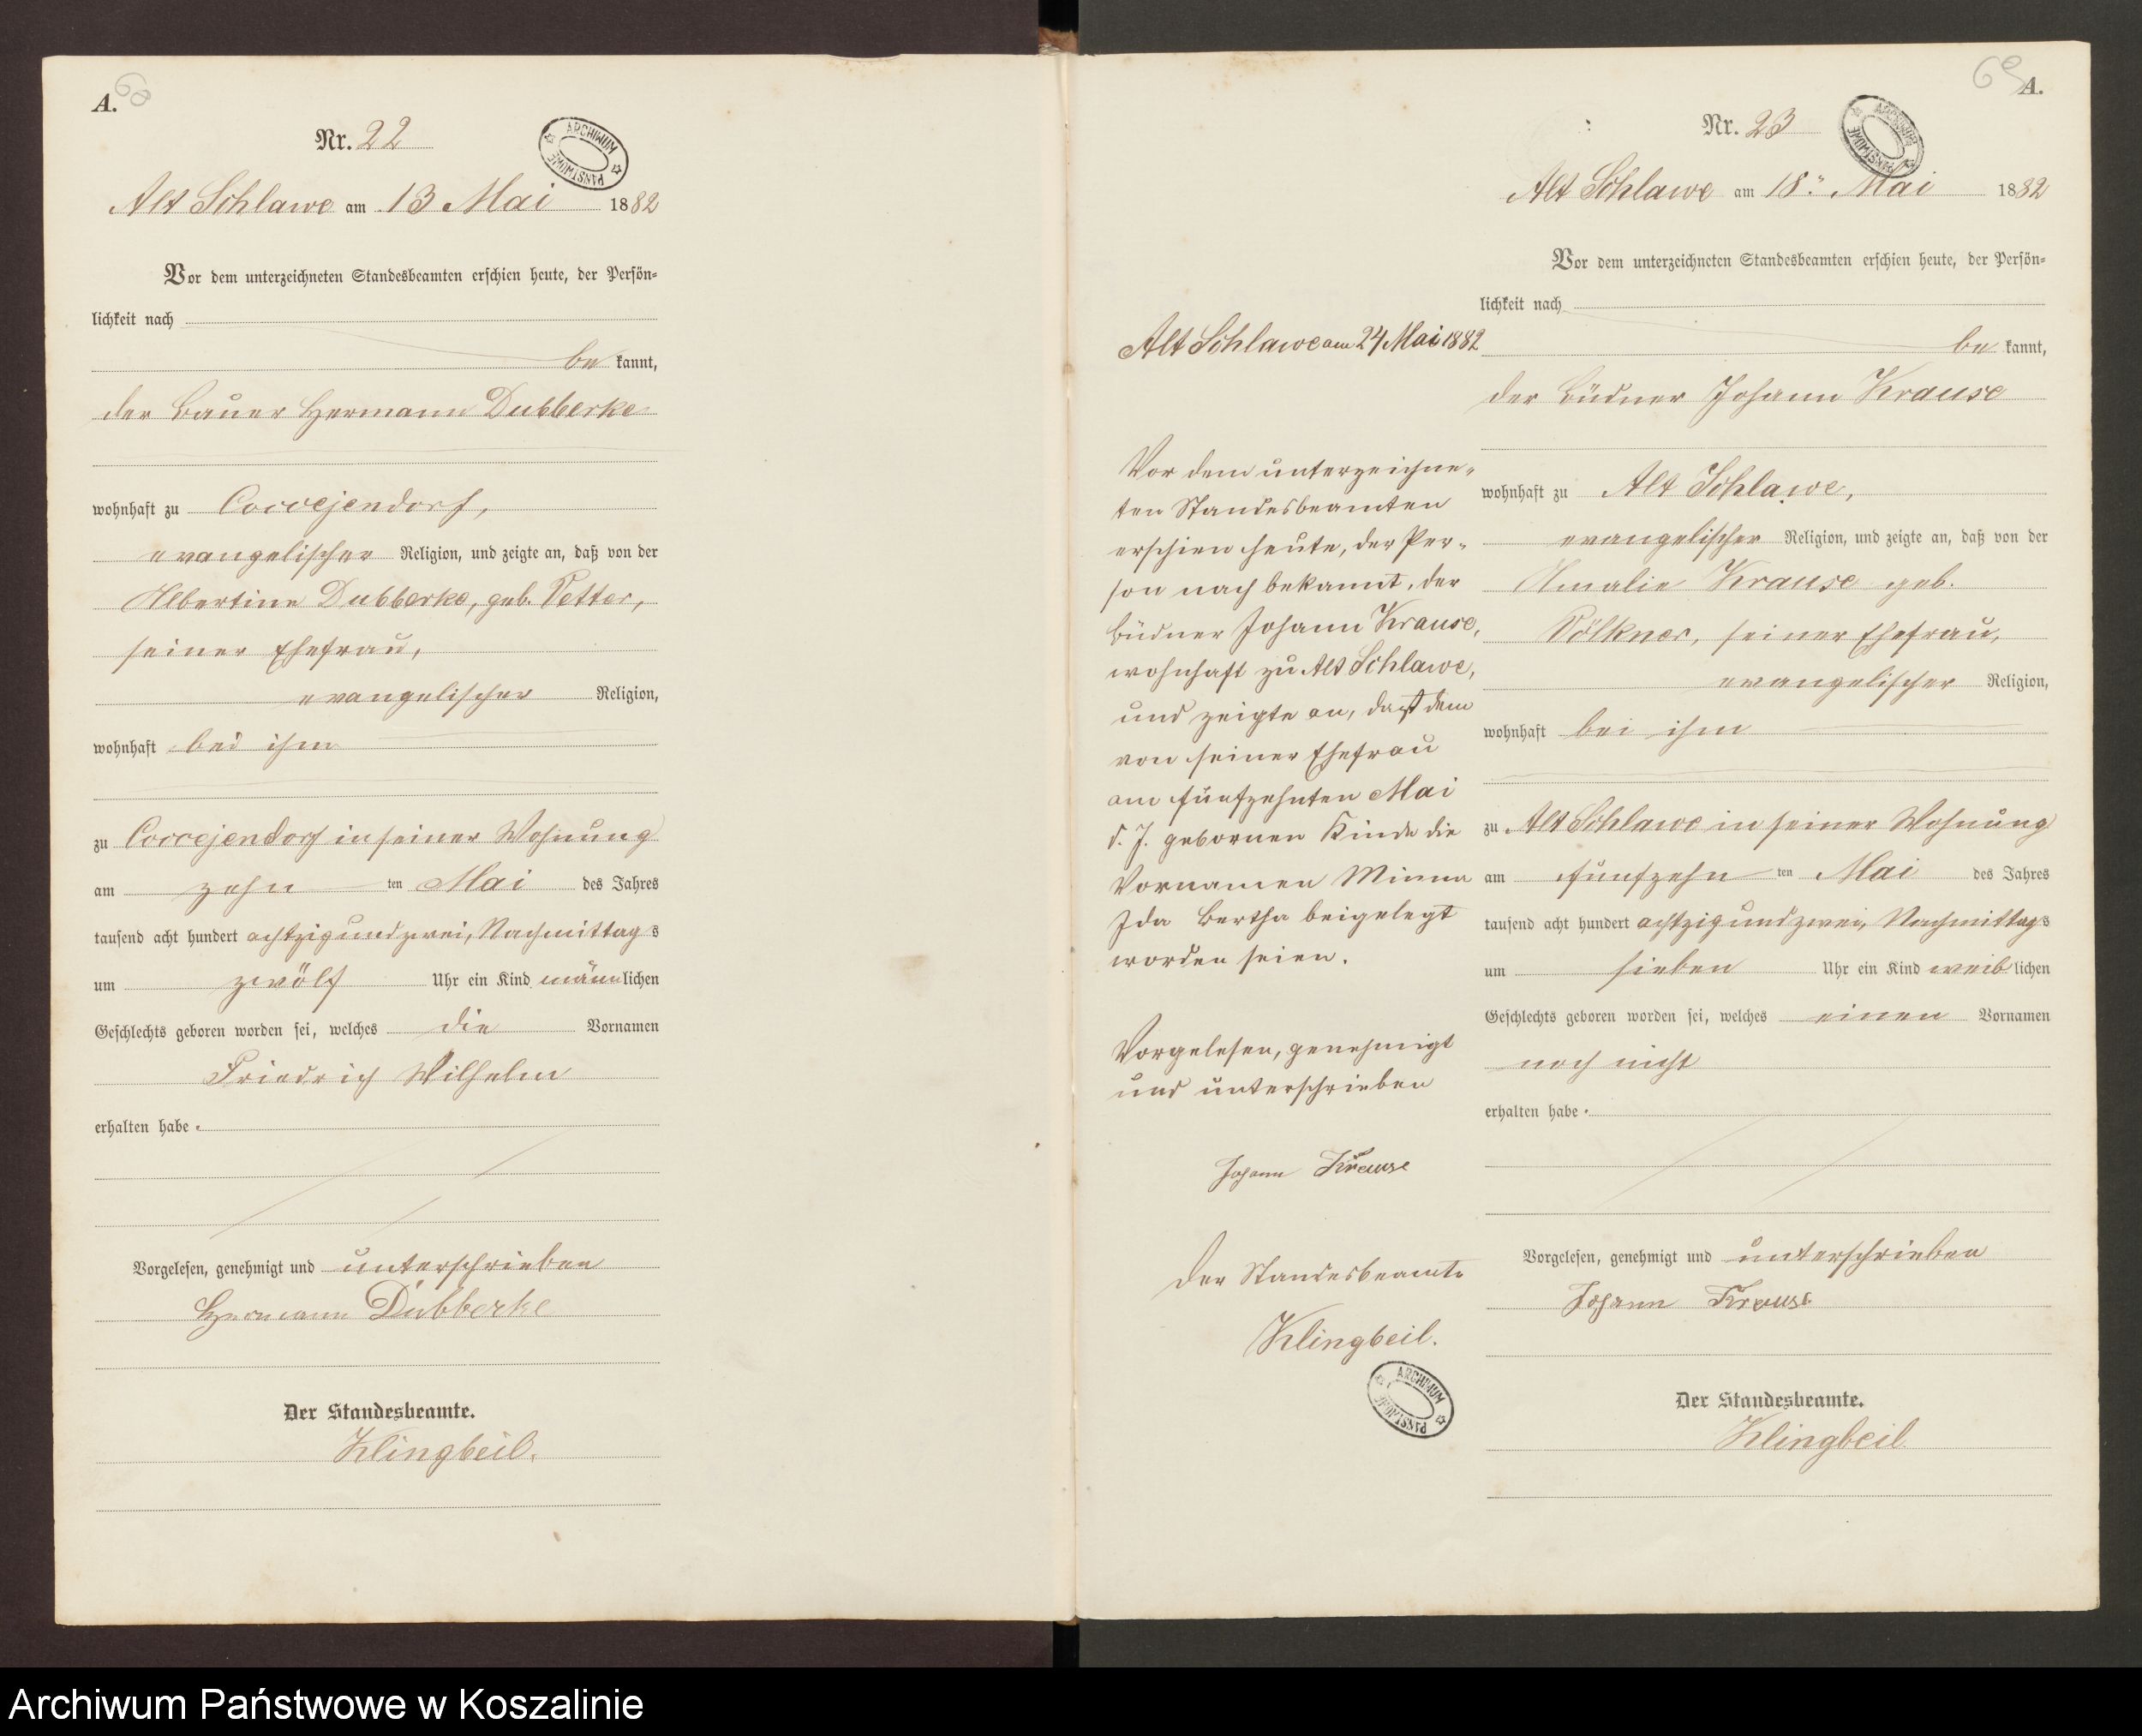 A.
68
Nr. 22
ARCHIWUM PAŃSTWOWE
Alt Schlawe am 13 Mai 1882
Vor dem unterzeichneten Standesbeamten erschien heute, der Persön=
lichkeit nach
be kannt,
der Bauer Hermann Dubberke
wohnhaft zu Coccejendorf,
evangelischer Religion, und zeigte an, daß von der
Albertine Dubberke, geb. Petter,
seiner Ehefrau,
evangelischer Religion,
wohnhaft bei ihm
zu Coccejendorf in seiner Wohnung
am zehn ten Mai des Jahres
tausend acht hundert achtzig und zwei, Nachmittags
um zwölf Uhr ein Kind männlichen
Geschlechts geboren worden sei, welches die Vornamen
Friedrich Wilhelm
erhalten habe.
Vorgelesen, genehmigt und unterschrieben
Hermann Dubberke
Der Standesbeamte.
Klingbeil.
69
A.
Nr. 23
ARCHIWUM PAŃSTWOWE
Alt Schlawe am 18. Mai 1882
Vor dem unterzeichneten Standesbeamten erschien heute, der Persön=
lichkeit nach
be kannt,
der Büdner Johann Krause
wohnhaft zu Alt Schlawe,
evangelischer Religion, und zeigte an, daß von der
Amalie Krause geb.
Völkner, seiner Ehefrau,
evangelischer Religion,
wohnhaft bei ihm
zu Alt Schlawe in seiner Wohnung
am fünfzehn ten Mai des Jahres
tausend acht hundert achtzig und zwei, Nachmittags
um sieben Uhr ein Kind weiblichen
Geschlechts geboren worden sei, welches einen Vornamen
noch nicht
erhalten habe.
Vorgelesen, genehmigt und unterschrieben
Johann Krause
Der Standesbeamte.
Klingbeil
Alt Schlawe am 24 Mai 1882
Vor dem unterzeichne=
ten Standesbeamten
erschien heute, der Per=
son nach bekannt, der
Büdner Johann Krause,
wohnhaft zu Alt Schlawe,
und zeigte an, daß dem
von seiner Ehefrau
am fünfzehnten Mai
d. J. gebornen Kinde die
Vornamen Minna
Ida Bertha beigelegt
worden seien.
Vorgelesen, genehmigt
und unterschrieben
Johann Krause
Der Standesbeamte
Klingbeil.
ARCHIWUM PAŃSTWOWE
Archiwum Państwowe w Koszalinie